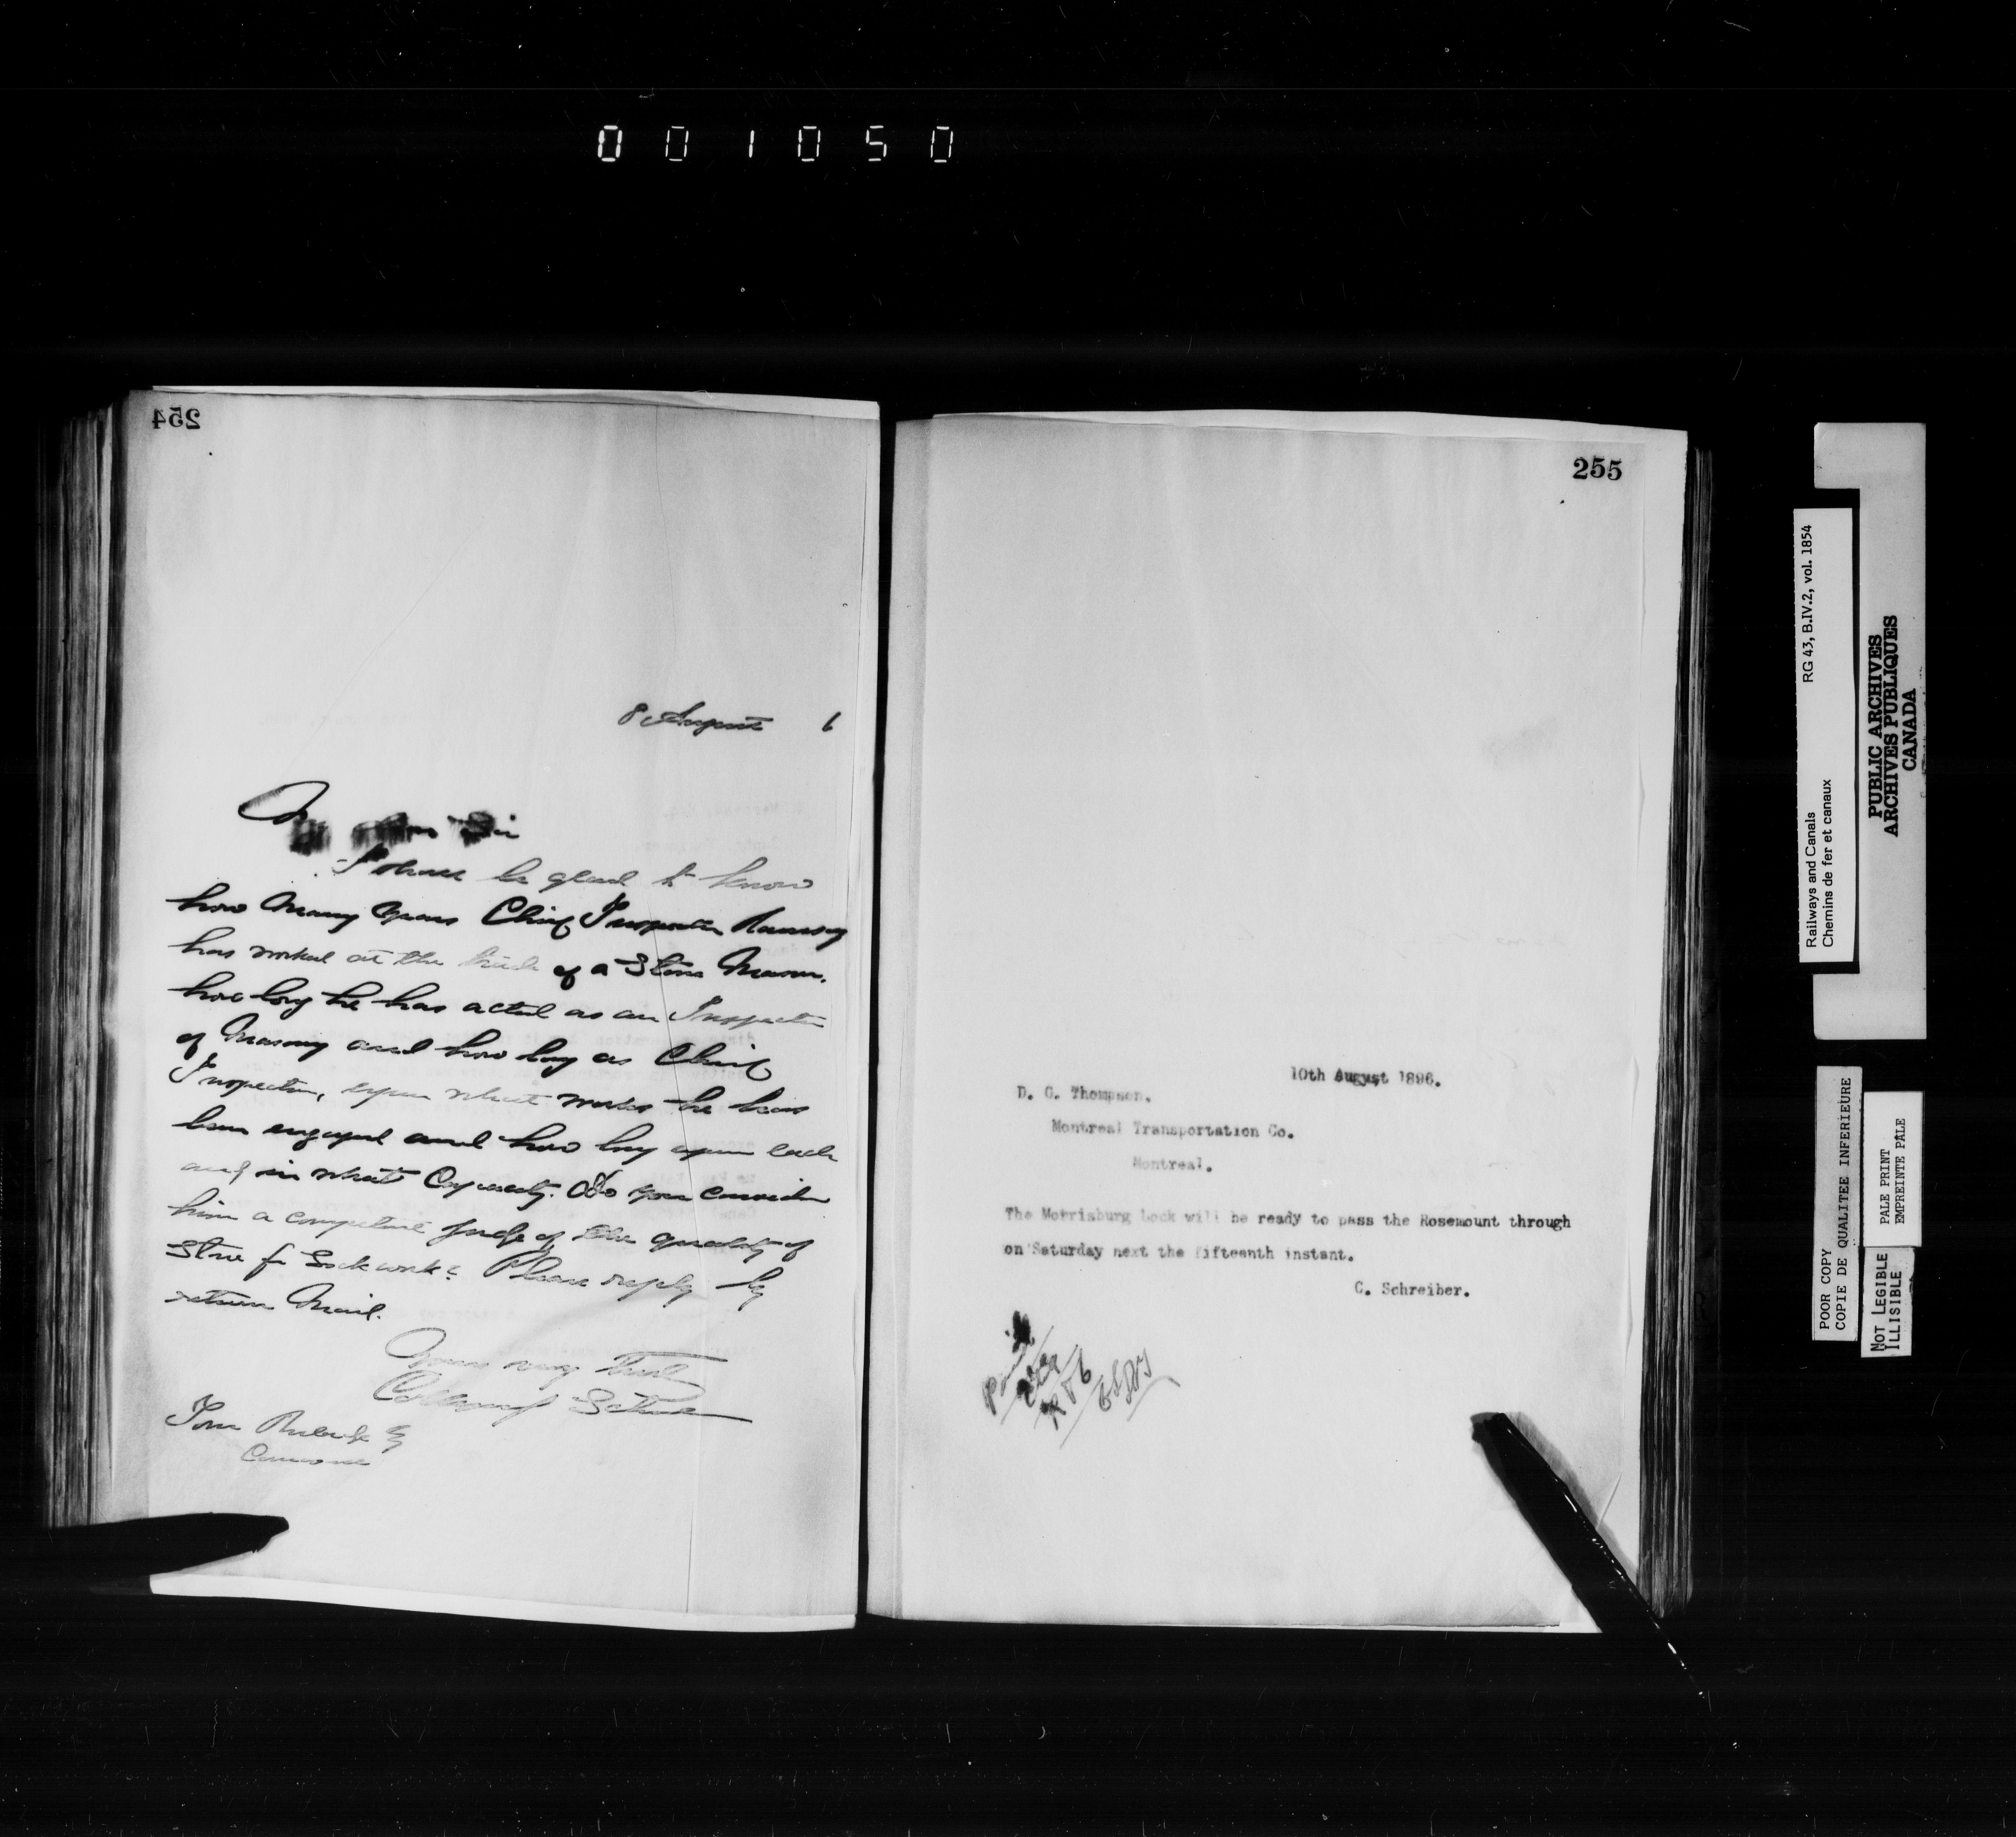 001050
254
8 August 6
My dear Sir
I shall be glad to know
how many years Chief Inspector Ramsay
has worked at the trade of a Stone Mason.
how long he has acted as an Inspector
of Masonry and how long as Chief
Inspector, upon what works he has
been engaged and how long upon each
and in what Capacity. Do you consider
him a competent judge of the quality of
Stone for Lock work? Please reply by
return Mail.
Yours very truly
Collingwood Schreiber
Tom Rubidge Esq
Cornwall
255
10th August 1896.
D. G. Thompson.
Montreal Transportation Co.
Montreal.
The Morrisburg Lock will be ready to pass the Rosemount through
on Saturday next the fifteenth instant.
C. Schreiber.
RG 43, B.IV.2, vol. 1854
Railways and Canals
Chemins de fer et canaux
PUBLIC ARCHIVES
ARCHIVES PUBLIQUES
CANADA
POOR COPY
COPIE DE QUALITEE INFERIEURE
PALE PRINT
EMPREINTE PALE
NOT LEGIBLE
ILLISIBLE